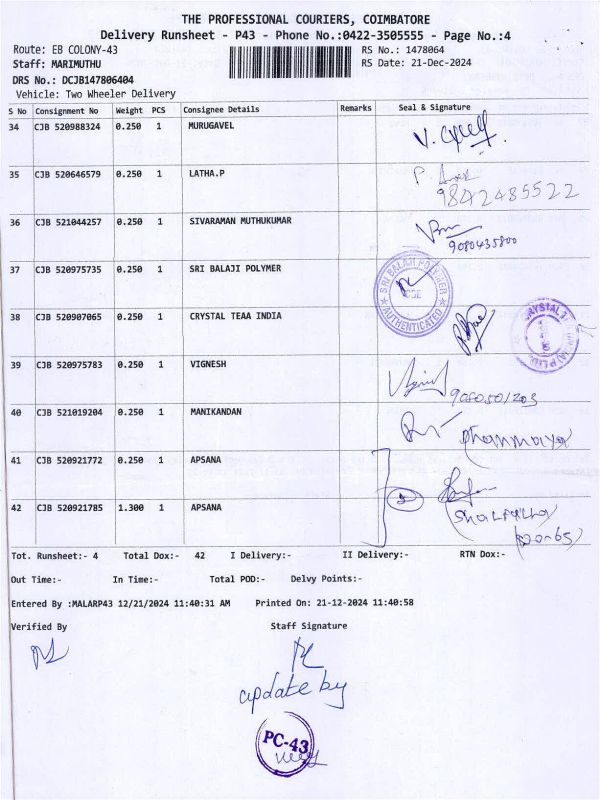 THE PROFESSIONAL COURIERS, COIMBATORE
Delivery Runsheet - P43 - Phone No.:0422-3505555 - Page No.:4
Route: EB COLONY-43 RS No.: 1478064
Staff: MARIMUTHU RS Date: 21-Dec-2024
DRS No.: DCJB147806404
Vehicle: Two Wheeler Delivery
S No Consignment No Weight PCS Consignee Details Remarks Seal & Signature
34 CJB 520988324 0.250 1 MURUGAVEL
35 CJB 520646579 0.250 1 LATHA.P
9842485522
36 CJB 521044257 0.250 1 SIVARAMAN MUTHUKUMAR
9080435800
37 CJB 520975735 0.250 1 SRI BALAJI POLYMER
SRI BALAJI POLYMER
CBE
AUTHENTICATED
38 CJB 520907065 0.250 1 CRYSTAL TEAA INDIA
CRYSTAL
39 CJB 520975783 0.250 1 VIGNESH
40 CJB 521019204 0.250 1 MANIKANDAN
41 CJB 520921772 0.250 1 APSANA
42 CJB 520921785 1.300 1 APSANA
Tot. Runsheet:- 4 Total Dox:- 42 I Delivery:- II Delivery:- RTN Dox:-
Out Time:- In Time:- Total POD:- Delvy Points:-
Entered By :MALARP43 12/21/2024 11:40:31 AM Printed On: 21-12-2024 11:40:58
Verified By Staff Signature
update by
PC-43